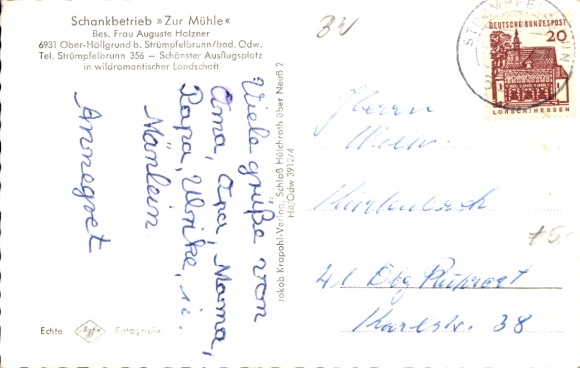 Schankbetrieb »Zur Mühle«
Bes. Frau Auguste Holzner
6931 Ober-Höllgrund b. Strümpfelbrunn/bad. Odw.
Tel. Strümpfelbrunn 356 — Schönster Ausflugsplatz
in wildromantischer Landschaft
Viele grüße von
Oma, Opa, Mama,
Papa, Ulrike, u.
Mänlein
Annegret
Jakob Krapohl-Verlag, Schloß Hülchrath über Neuß 2
Hö/Odw 3912/4
Echte Agfa Fotografie
DEUTSCHE BUNDESPOST
20
LORSCH/HESSEN
Herrn
Wilh.
41 Dbg Ruhrort
Karlstr. 38